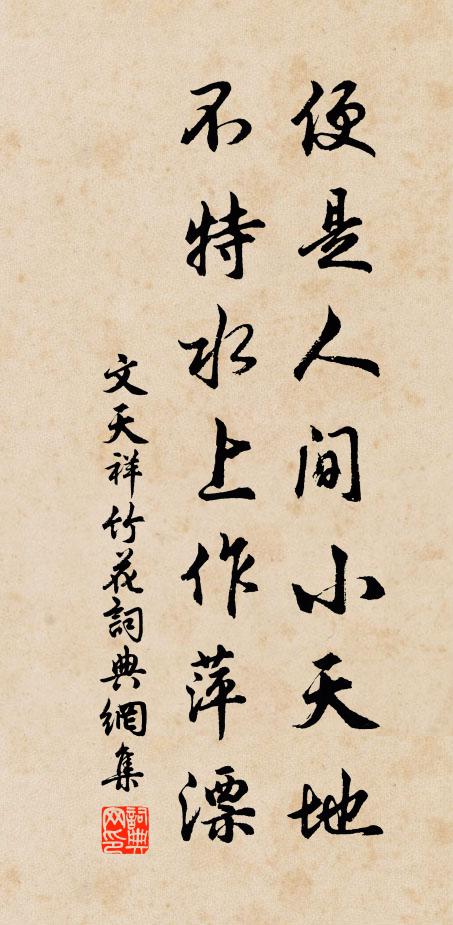 便是人间小天地
不特水上作萍漂
文天祥竹花詞典網集
詞典网印